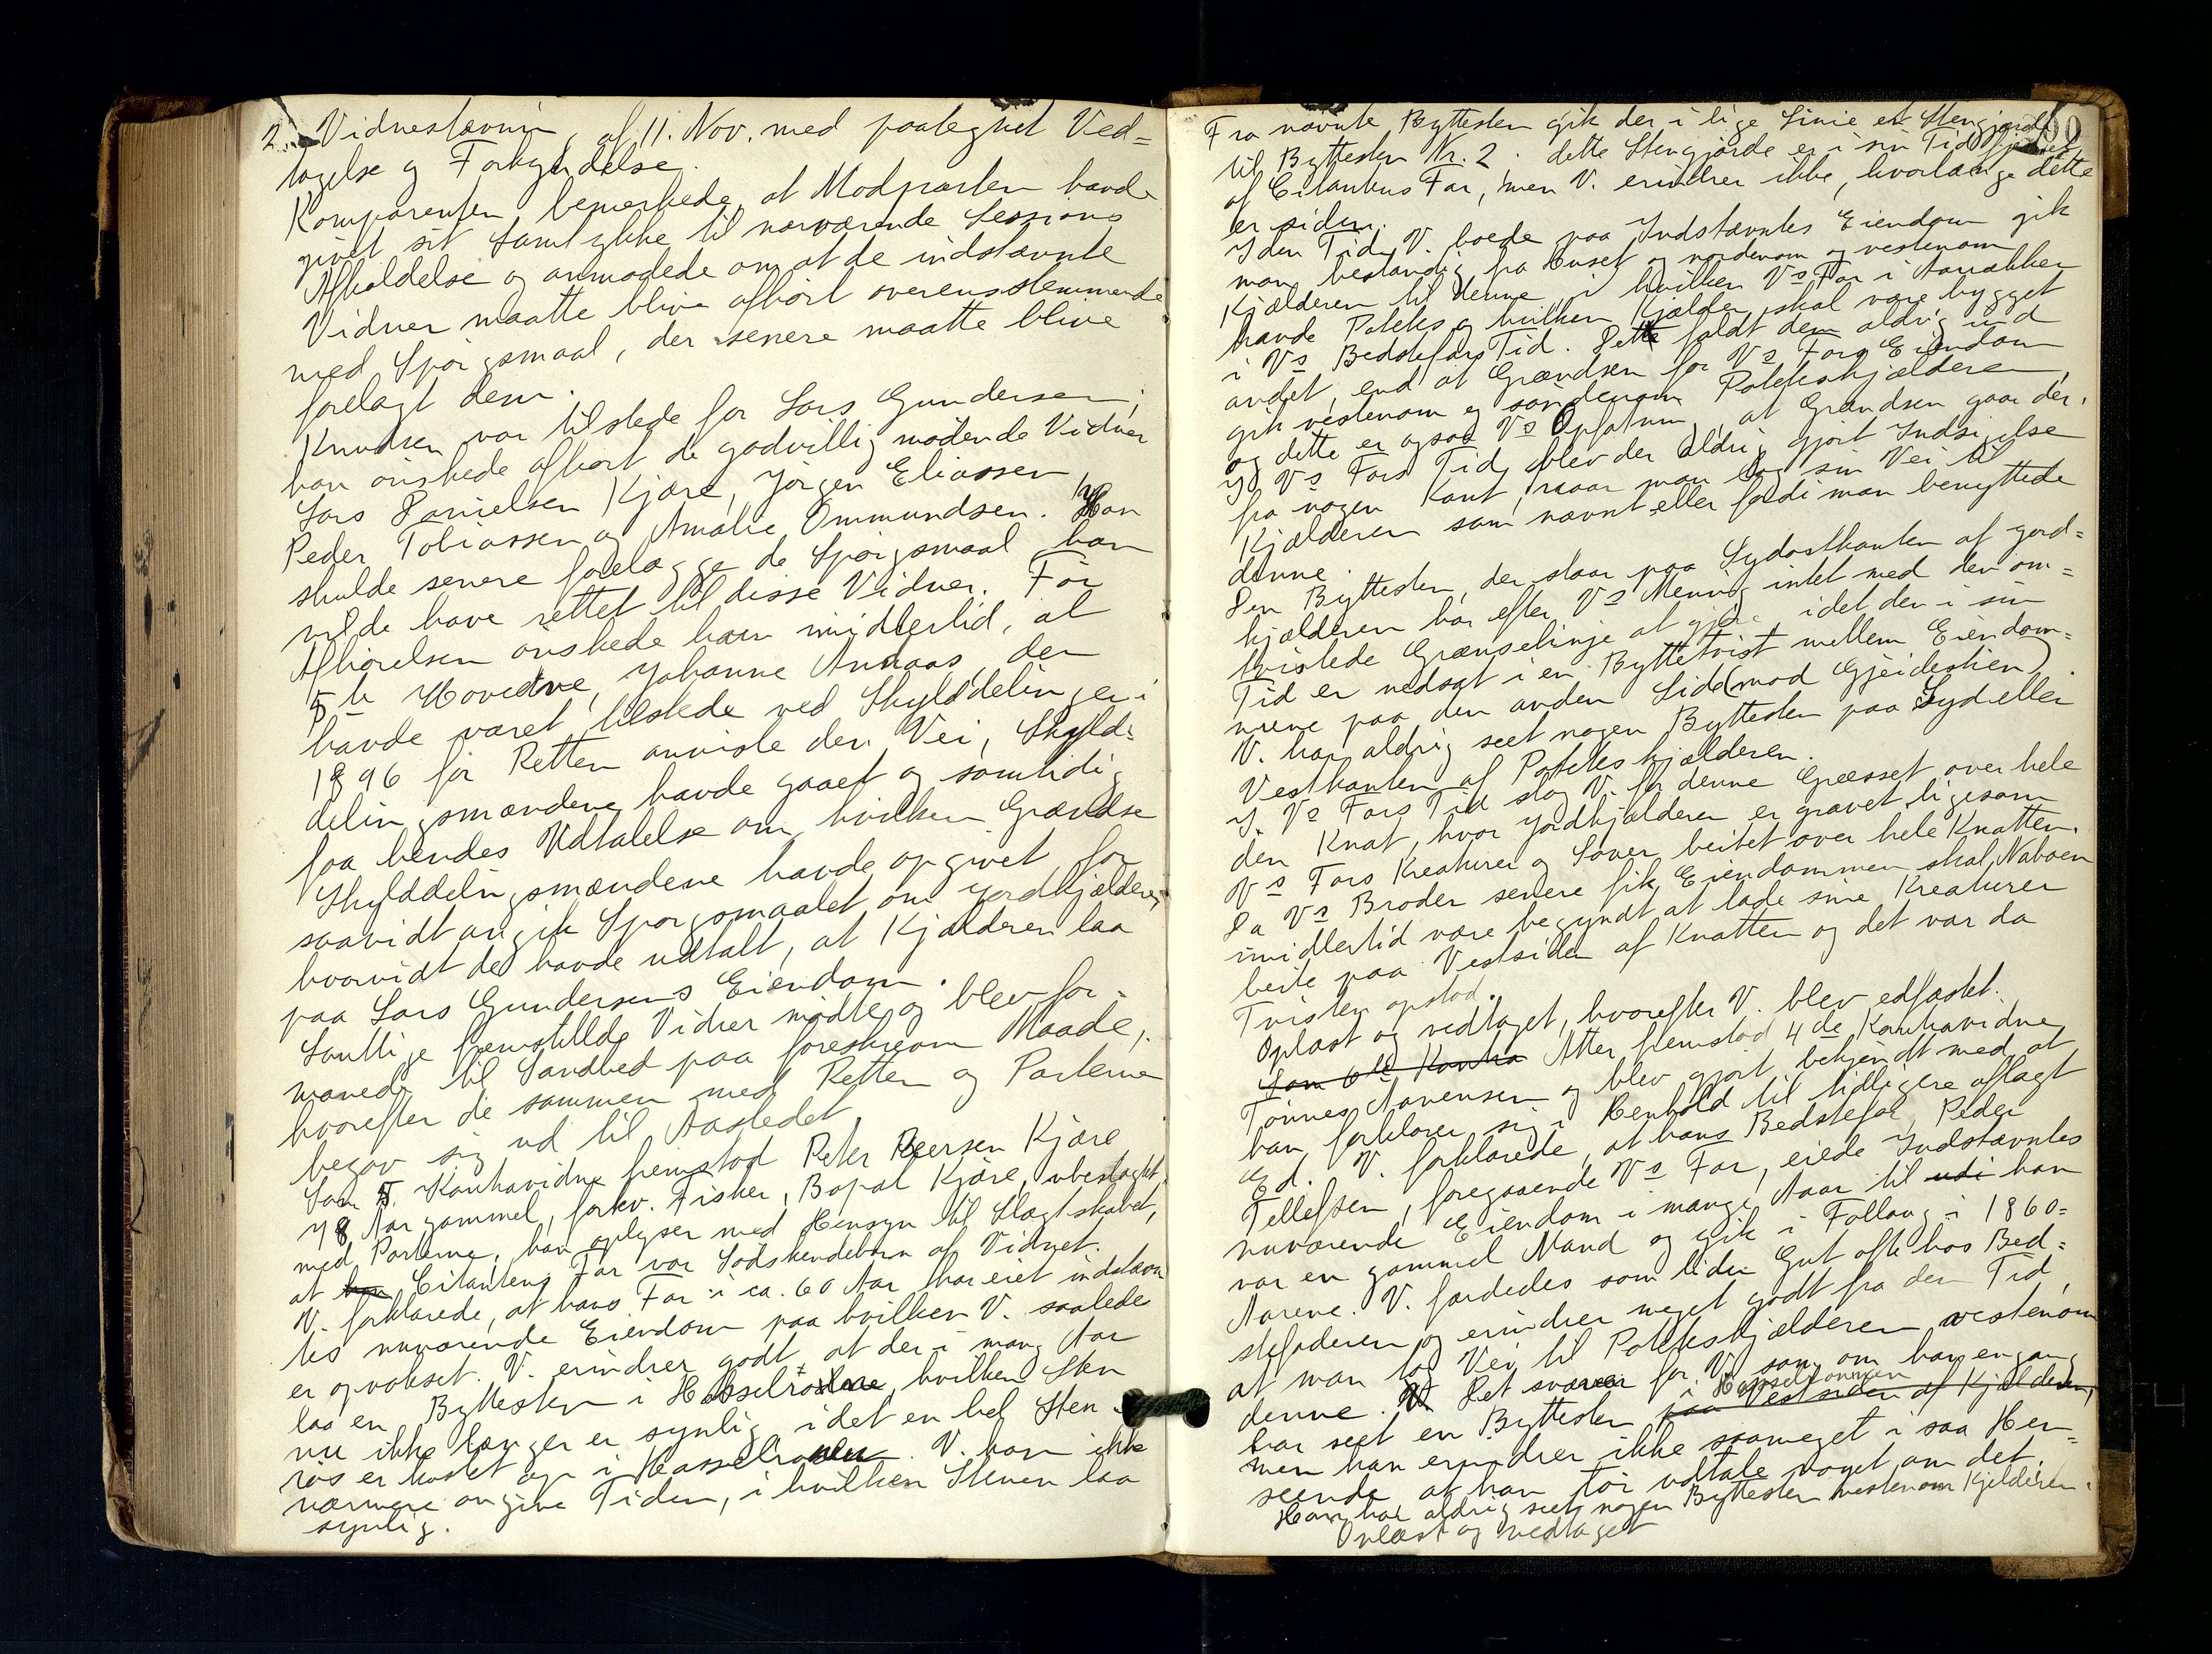 2. Vidnestævning af 11. Nov. med paategnet Ved=
tagelse og Forkyndelse.
Komparenten bemerkede, at Modparten havde
givet sit Samtykke til nærværende Sessions
Afholdelse og anmodede om at de indstævnte
Vidner maatte blive afhørt overensstemmende
med Spørgsmaal, der senere maatte blive
forelagt dem.
Knudsen var tilstede for Lars Gundersen;
han ønskede afhørt de godvillig mødende Vidner
Lars Danielsen Kjære, Jørgen Eliassen,
Peder Tobiassen og Amalie Ommundsen. Han
skulde senere forelægge de Spørgsmaal han
vilde have rettet til disse Vidner. Før
Afhørelsen ønskede han imidlertid, at
5te Hovedvidne, Johanne Aanaas, der
havde været tilstede ved Skylddelingen i
1896 for Retten anviste den Vei, Skyld=
delingsmændene havde gaaet og samtidig
faa hendes Udtalelse om, hvilken Grændse
Skylddelingsmændene havde opgivet for
saavidt angik Spørgsmaalet om Jordkjælderen,
hvorvidt de havde udtalt, at Kjælderen laa
paa Lars Gundersens Eiendom.
Samtlige fremstillde Vidner mødte og blev for=
manede til Sandhed paa foreskreven Maade,
hvorefter de sammen med Retten og Parterne
begav sig ud til Aastedet.
Som 5. Kontravidne fremstod Peter Peersen Kjære
78 Aar gammel, forhv. Fisker, Bopæl Kjære, ubeslægtet
med Parterne, han oplyser med Hensyn til Slægtskabet,
at han Citantens Far var Sødskendebarn af Vidnet.
V. forklarede, at hans Far i ca. 60 Aar har eiet indstævn
tes nuværende Eiendom paa hvilken V. saaledes
er opvokset. V. erindrer godt, at der i mang Aar
laa en Byttesten i Hasselrønne, hvilken Sten
nu ikke længer er synlig, idet en hel Sten
røs er kastet op i Hasselrønnen. V. kan ikke
nærmere angive Tiden, i hvilken Stenen laa
synlig.
Fra nævnte Byttesten gik der i lige Linie et Stengjærde
til Byttesten Nr. 2. dette Stengjærde er i sin Tid fjernet
af Citantens Far, men V. erindrer ikke, hvorlænge dette
er siden.
I den Tid V. boede paa Indstævntes Eiendom gik
man bestandig fra Huset og nordenom og vestenom
Kjælderen til denne i hvilken Vs Far i Aarrækker
havde Potetes og hvilken Kjælder skal være bygget
i Vs Bedstefars Tid. Dette faldt dem aldrig ind
andet, end at Grændsen for Vs Fars Eiendom
gik vestenom og søndenom Poteteskjælderen,
og dette er ogsaa Vs Opfatning, at Grændsen gaar der.
I Vs Fars Tid blev der aldrig gjort Indsigelse
fra nogen Kant, naar man tog sin Vei til
Kjælderen som nævnt eller fordi man benyttede
denne.
Den Byttesten, der staar paa Sydostkanten af Jord=
kjælderen har efter Vs Mening intet med den om=
tvistede Grænselinje at gjøre, idet den i sin
Tid er nedsat i en Byttetvist mellem Eiendom=
mene paa den anden Side (mod Gjeidestien).
V. har aldrig seet nogen Byttesten paa Syd eller
Vestkanten af Poteteskjælderen.
I Vs Fars Tid slog V. for denne Græsset over hele
den Knat, hvor Jordkjælderen er gravet, ligesom
Vs Fars Kreaturer og Sauer beitet over hele Knatten.
Da Vs Broder senere fik Eiendommen skal Naboen
imidlertid være begyndt at lade sine Kreaturer
beite paa Vestsiden af Knatten og det var da
Tvisten opstod.
Oplæst og vedtaget, hvorefter V. blev edfæstet.
Som 6te Kontra Atter fremstod 4de Kontravidne
Tønnes Aanensen og blev gjort bekjendt med at
han forklarer sig i Henhold til tidligere aflagt
Ed. V. forklarede, at hans Bedstefar, Peder
Tellefsen, foregaaende Vs Far, eiede Indstævntes
nuværende Eiendom i mange Aar til udi han
var en gammel Mand og gik i Follaug i 1860=
Aarene. V. færdedes som liden Gut ofte hos Bed=
stefaderen og erindrer meget godt fra den Tid,
at man tog Vei til Poteteskjælderen vestenom
denne. Det svæver for V. som om han engang
har seet en Byttesten paa Vestsiden af Kjælderen, i Hasselrønnen
men han erindrer ikke saameget i saa Hen=
seende at han tør udtale noget om det.
Han har aldrig seet nogen Byttesten vestenom Kjelderen.
Oplæst og vedtaget